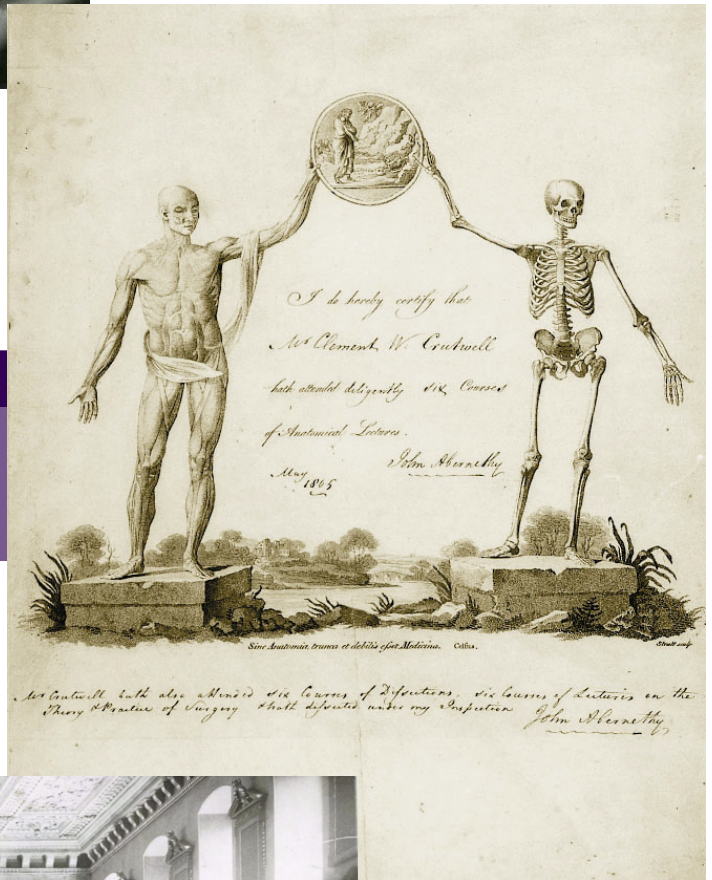 I do hereby certify that
Mr Clement W. Crutwell
hath attended diligently six Courses
of Anatomical Lectures.
John Abernethy
May
1805
Sine Anatomia trunca et debilis esset Medicina. Celsus.
Mr Crutwell hath also attended six Courses of Dissections, six Courses of Lectures on the
Theory & Practice of Surgery & hath dissected under my Inspection
John Abernethy